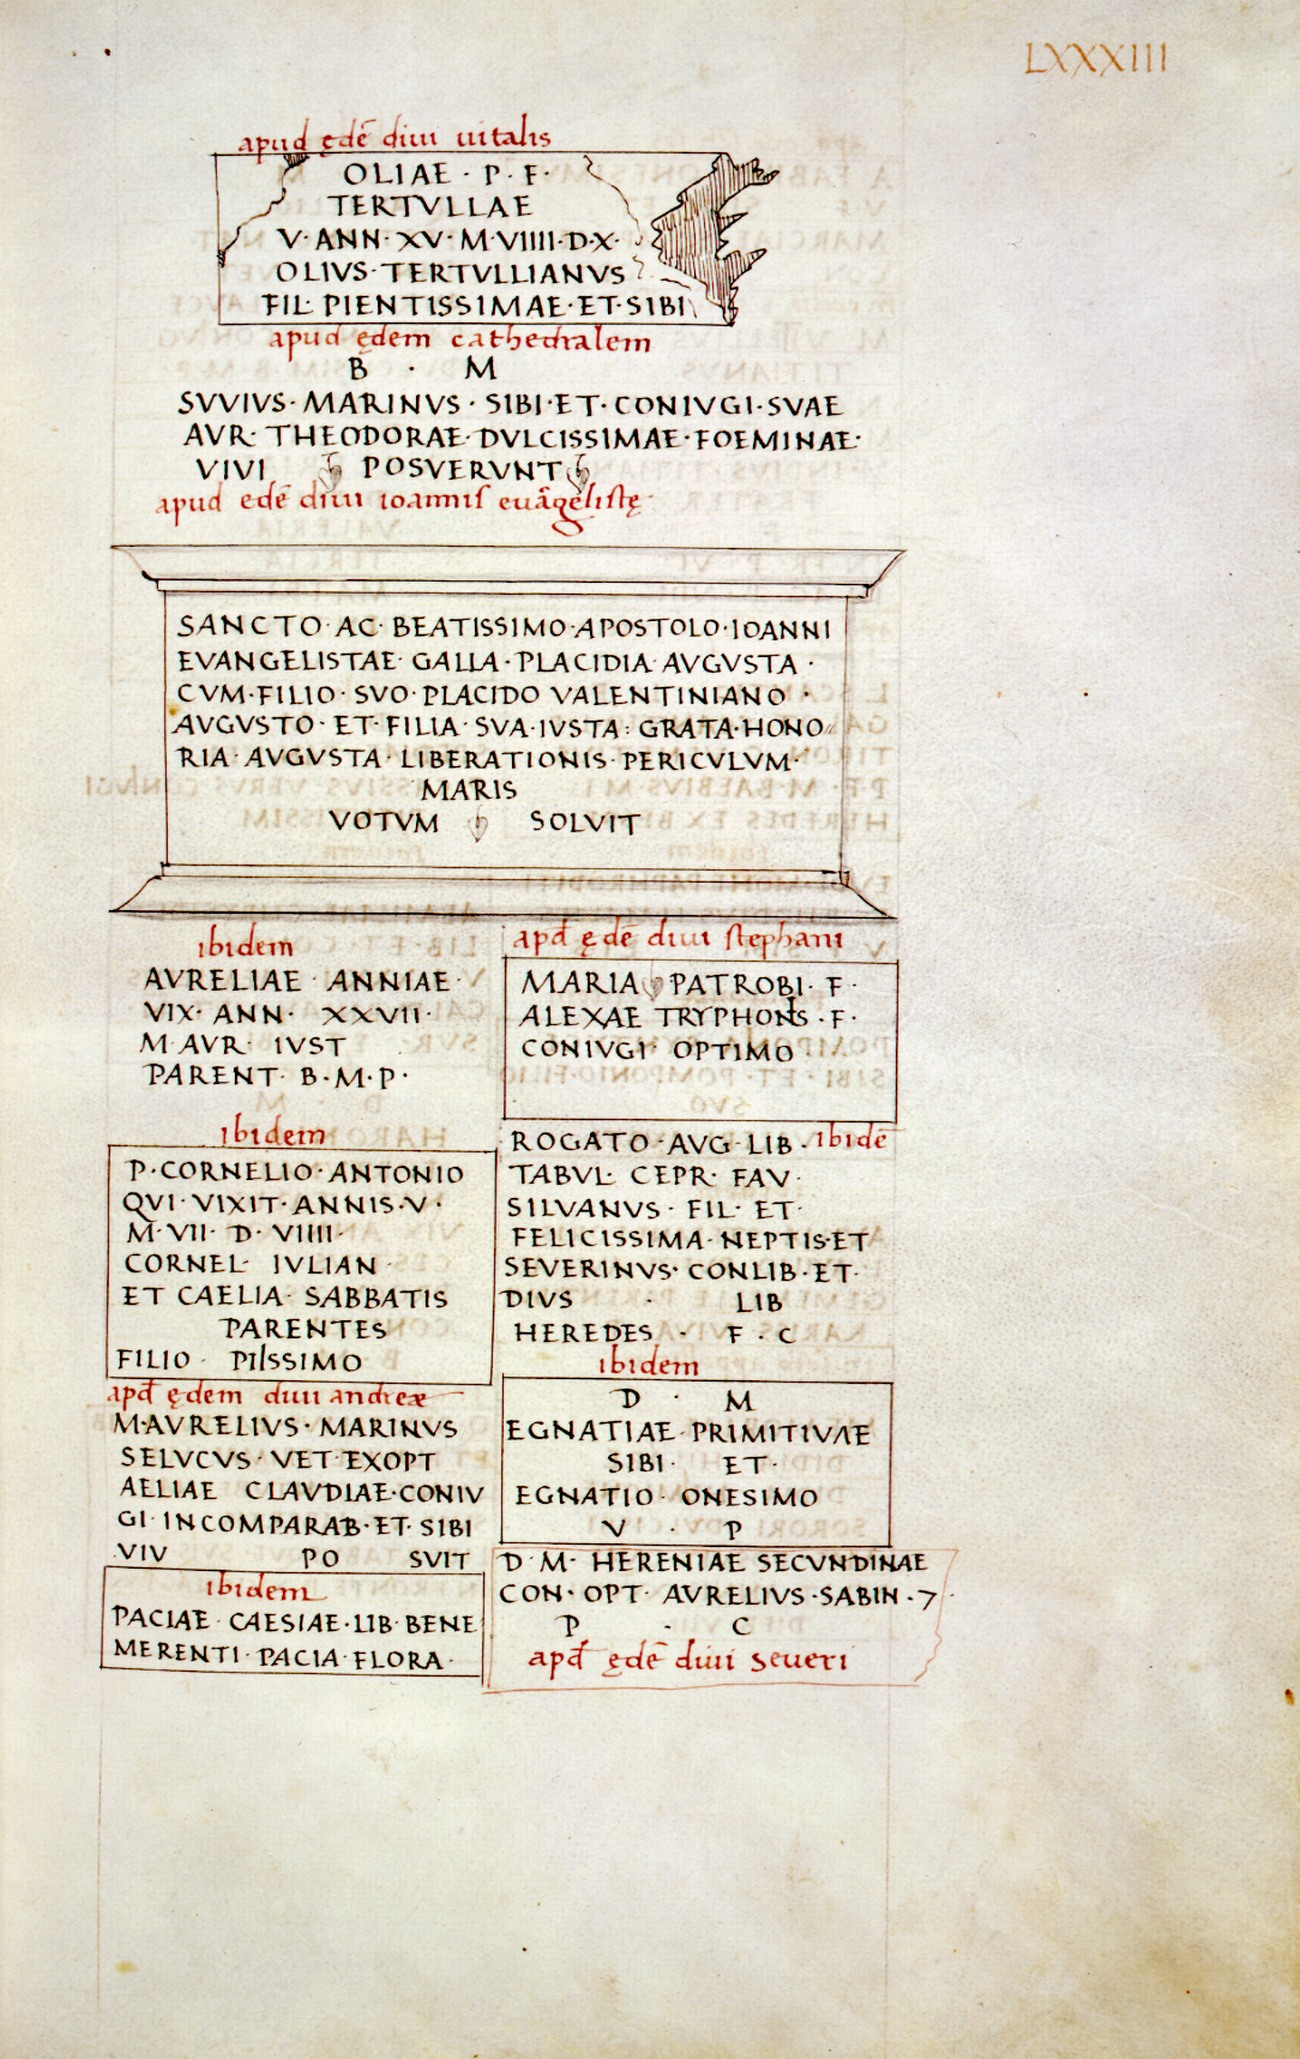 LXXXIII
apud ędē diui uitalis
OLIAE · P · F ·
TERTVLLAE
V · ANN · XV · M · VIIII · D · X ·
OLIVS · TERTVLLIANVS
FIL · PIENTISSIMAE · ET · SIBI
apud ędem cathedralem
B · M
SVVIVS · MARINVS · SIBI · ET · CONIVGI · SVAE
AVR · THEODORAE · DVLCISSIMAE · FOEMINAE ·
VIVI POSVERVNT
apud edē diui ioannis euāgelistę
SANCTO · AC · BEATISSIMO · APOSTOLO · IOANNI
EVANGELISTAE · GALLA · PLACIDIA · AVGVSTA ·
CVM · FILIO · SVO · PLACIDO VALENTINIANO ·
AVGVSTO · ET · FILIA · SVA · IVSTA : GRATA · HONO
RIA · AVGVSTA · LIBERATIONIS · PERICVLVM ·
MARIS
VOTVM SOLVIT
ibidem
AVRELIAE · ANNIAE ·
VIX · ANN · XXVII ·
M · AVR · IVST
PARENT · B · M · P ·
ibidem
P · CORNELIO · ANTONIO
QVI · VIXIT · ANNIS · V ·
M · VII · D · VIIII ·
CORNEL · IVLIAN
ET CAELIA · SABBATIS
PARENTES
FILIO · PIISSIMO
apđ ędem diui andreæ
M · AVRELIVS · MARINVS
SELVCVS · VET · EXOPT
AELIAE CLAVDIAE · CONIV
GI · INCOMPARAB · ET · SIBI
VIV PO SVIT
ibidem
PACIAE · CAESIAE · LIB · BENE
MERENTI · PACIA · FLORA ·
apđ ędē diui stephani
MARIA PATROBI · F ·
ALEXAE TRYPHONIS · F ·
CONIVGI · OPTIMO
ROGATO · AVG · LIB · ibidē
TABVL · CEPR · FAV ·
SILVANVS · FIL · ET ·
FELICISSIMA · NEPTIS · ET
SEVERINVS · CONLIB · ET ·
DIVS · LIB
HEREDES · F · C
ibidem
D · M
EGNATIAE · PRIMITIVAE
SIBI · ET ·
EGNATIO · ONESIMO
V · P
D · M · HERENIAE SECVNDINAE
CON · OPT · AVRELIVS · SABIN · 7 ·
P · C
apđ ędē diui seueri